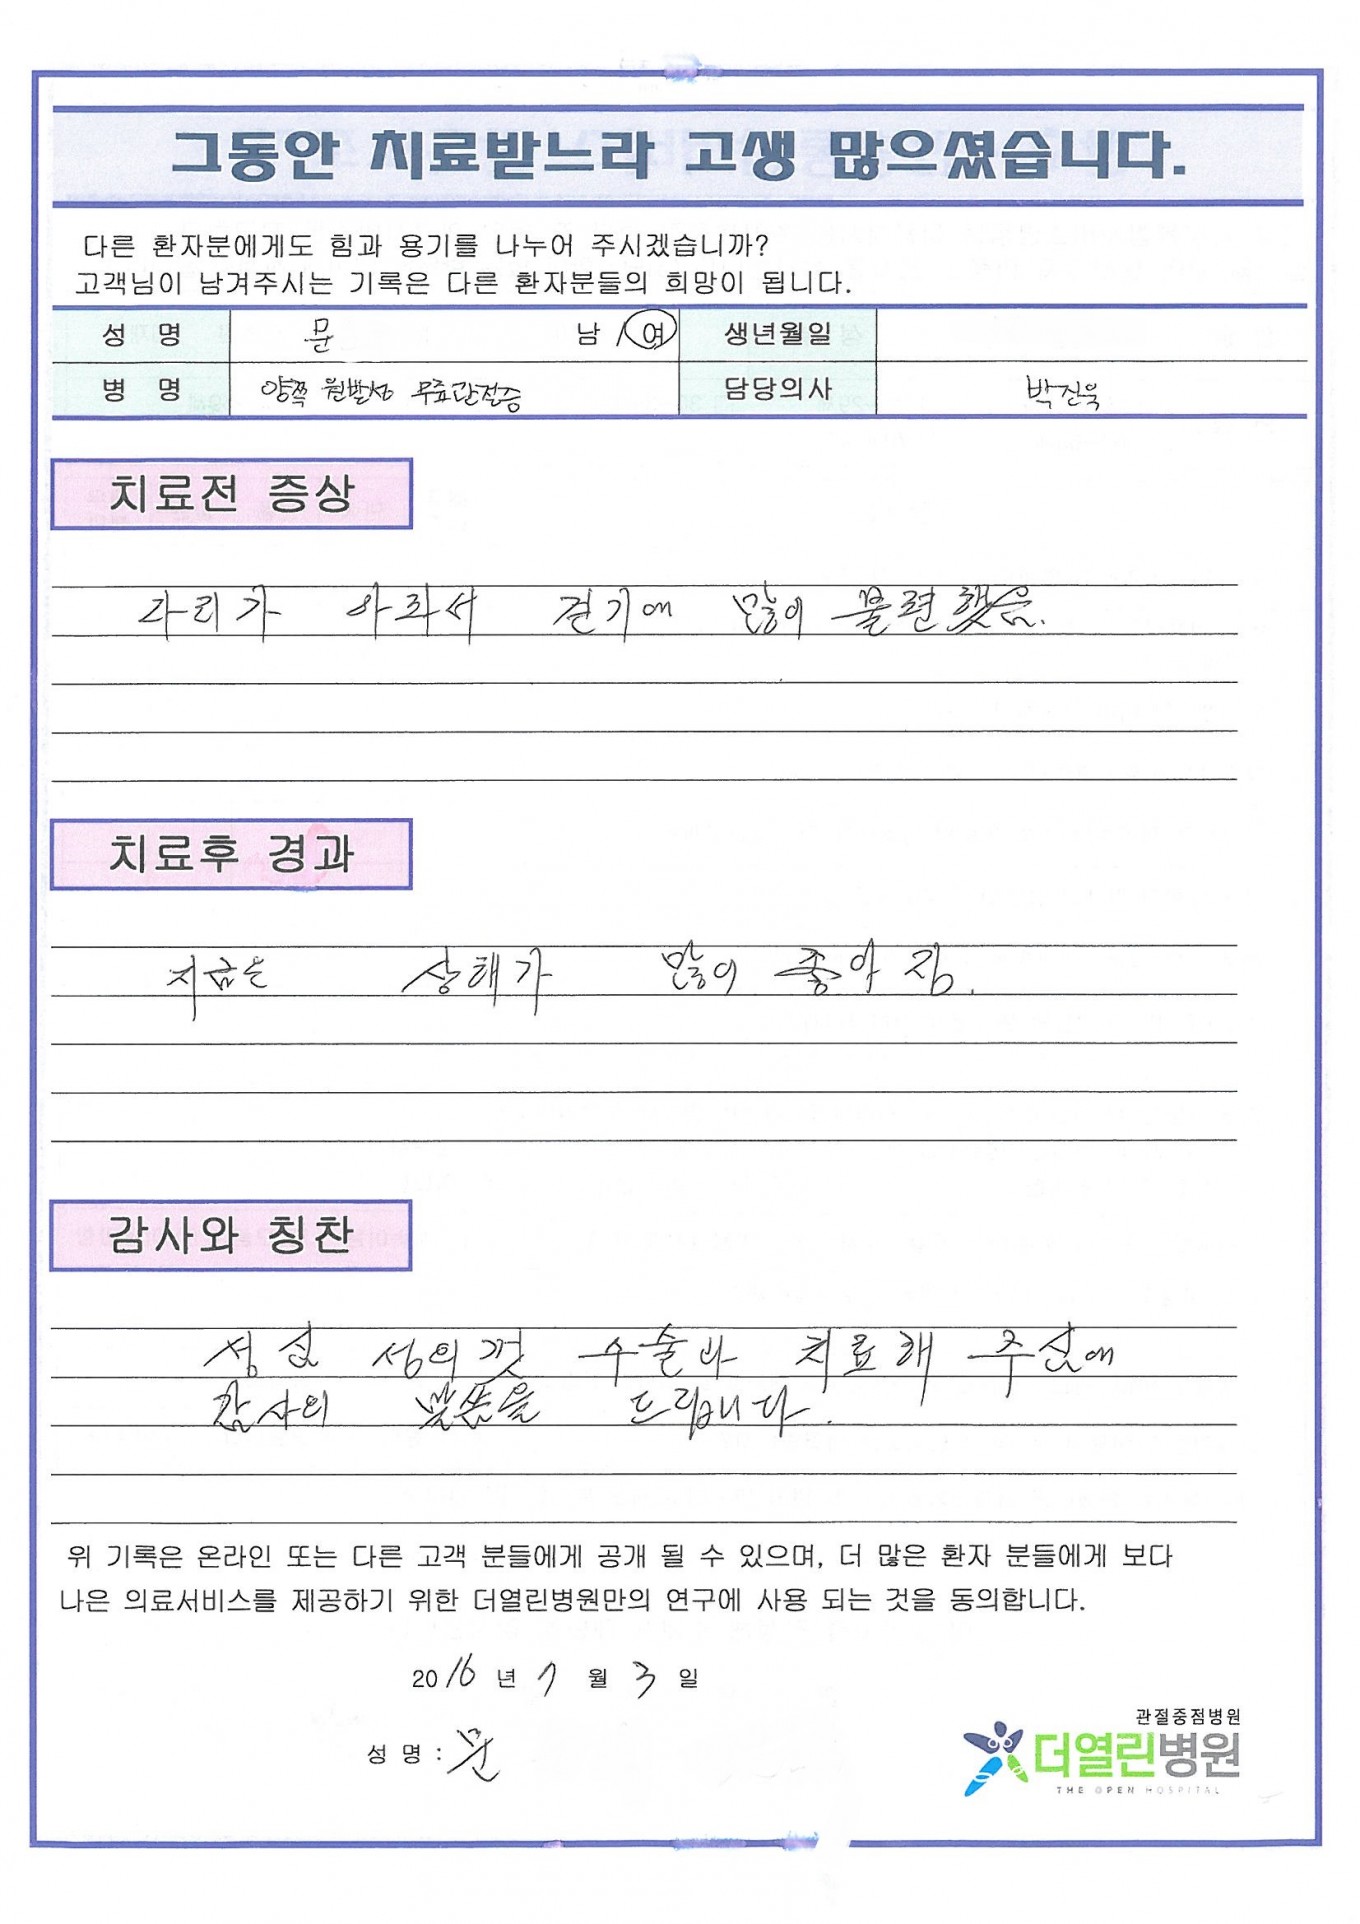 그동안 치료받느라 고생 많으셨습니다.
다른 환자분에게도 힘과 용기를 나누어 주시겠습니까?
고객님이 남겨주시는 기록은 다른 환자분들의 희망이 됩니다.
성 명 문 남 / 여 생년월일
병 명 양쪽 원발성 무릎관절증 담당의사 박진욱
치료전 증상
다리가 아파서 걷기에 많이 불편했음.
치료후 경과
지금은 상태가 많이 좋아 짐.
감사와 칭찬
성심 성의껏 수술과 치료해 주심에
감사의 말씀을 드립니다.
위 기록은 온라인 또는 다른 고객 분들에게 공개 될 수 있으며, 더 많은 환자 분들에게 보다
나은 의료서비스를 제공하기 위한 더열린병원만의 연구에 사용 되는 것을 동의합니다.
2016 년 7 월 3 일
성 명 : 문
관절중점병원
더열린병원
THE OPEN HOSPITAL